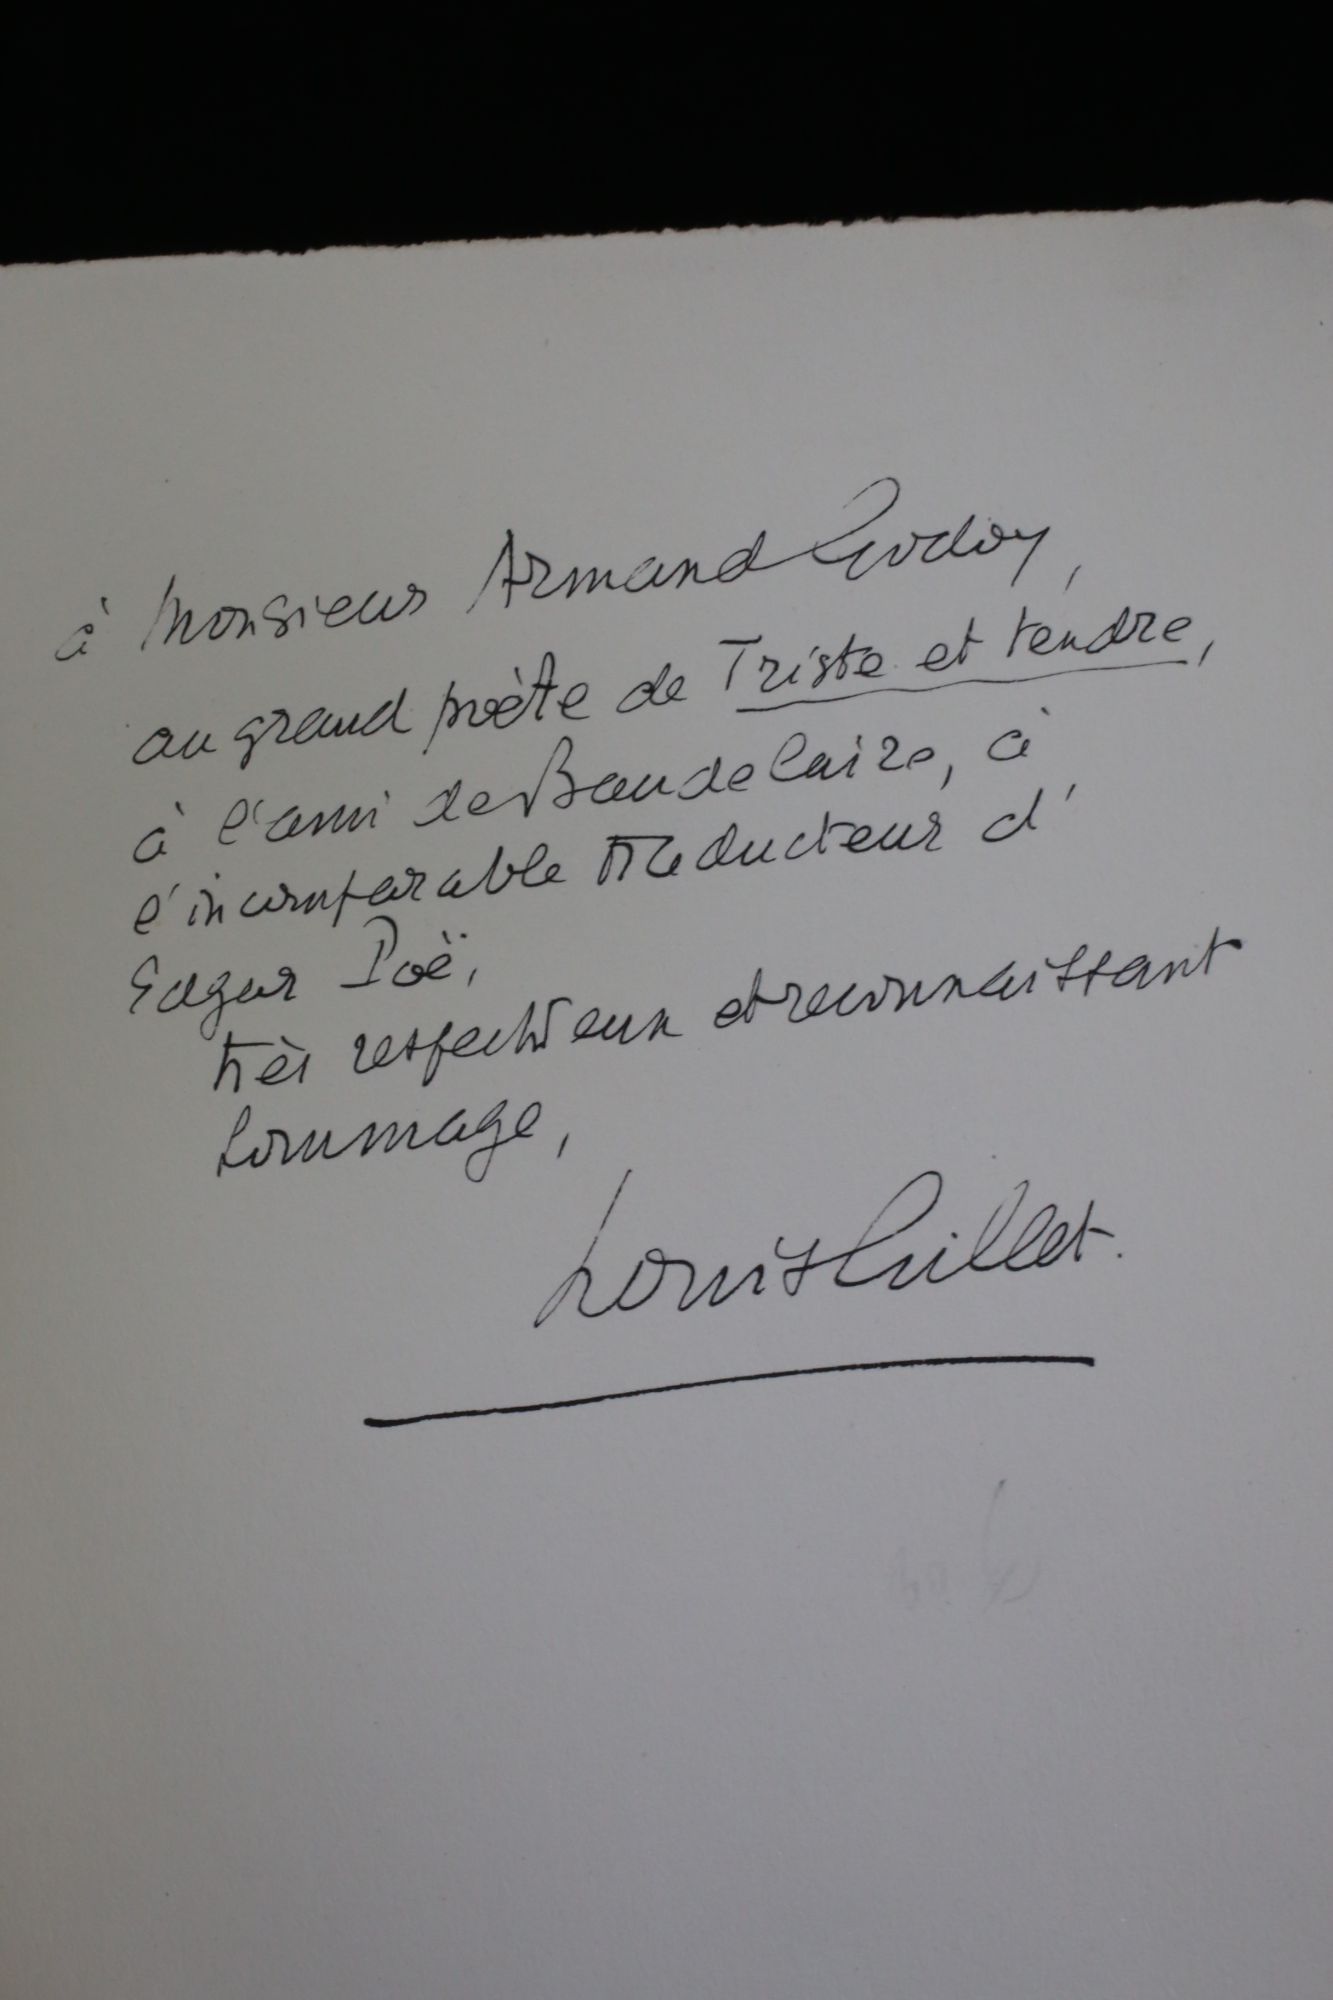 à Monsieur Armand Godoy,
au grand poète de Triste et tendre,
à l'ami de Baudelaire, à
l'incomparable traducteur d'
Edgar Poë,
très respectueux et reconnaissant
hommage,
Louis Guillet.